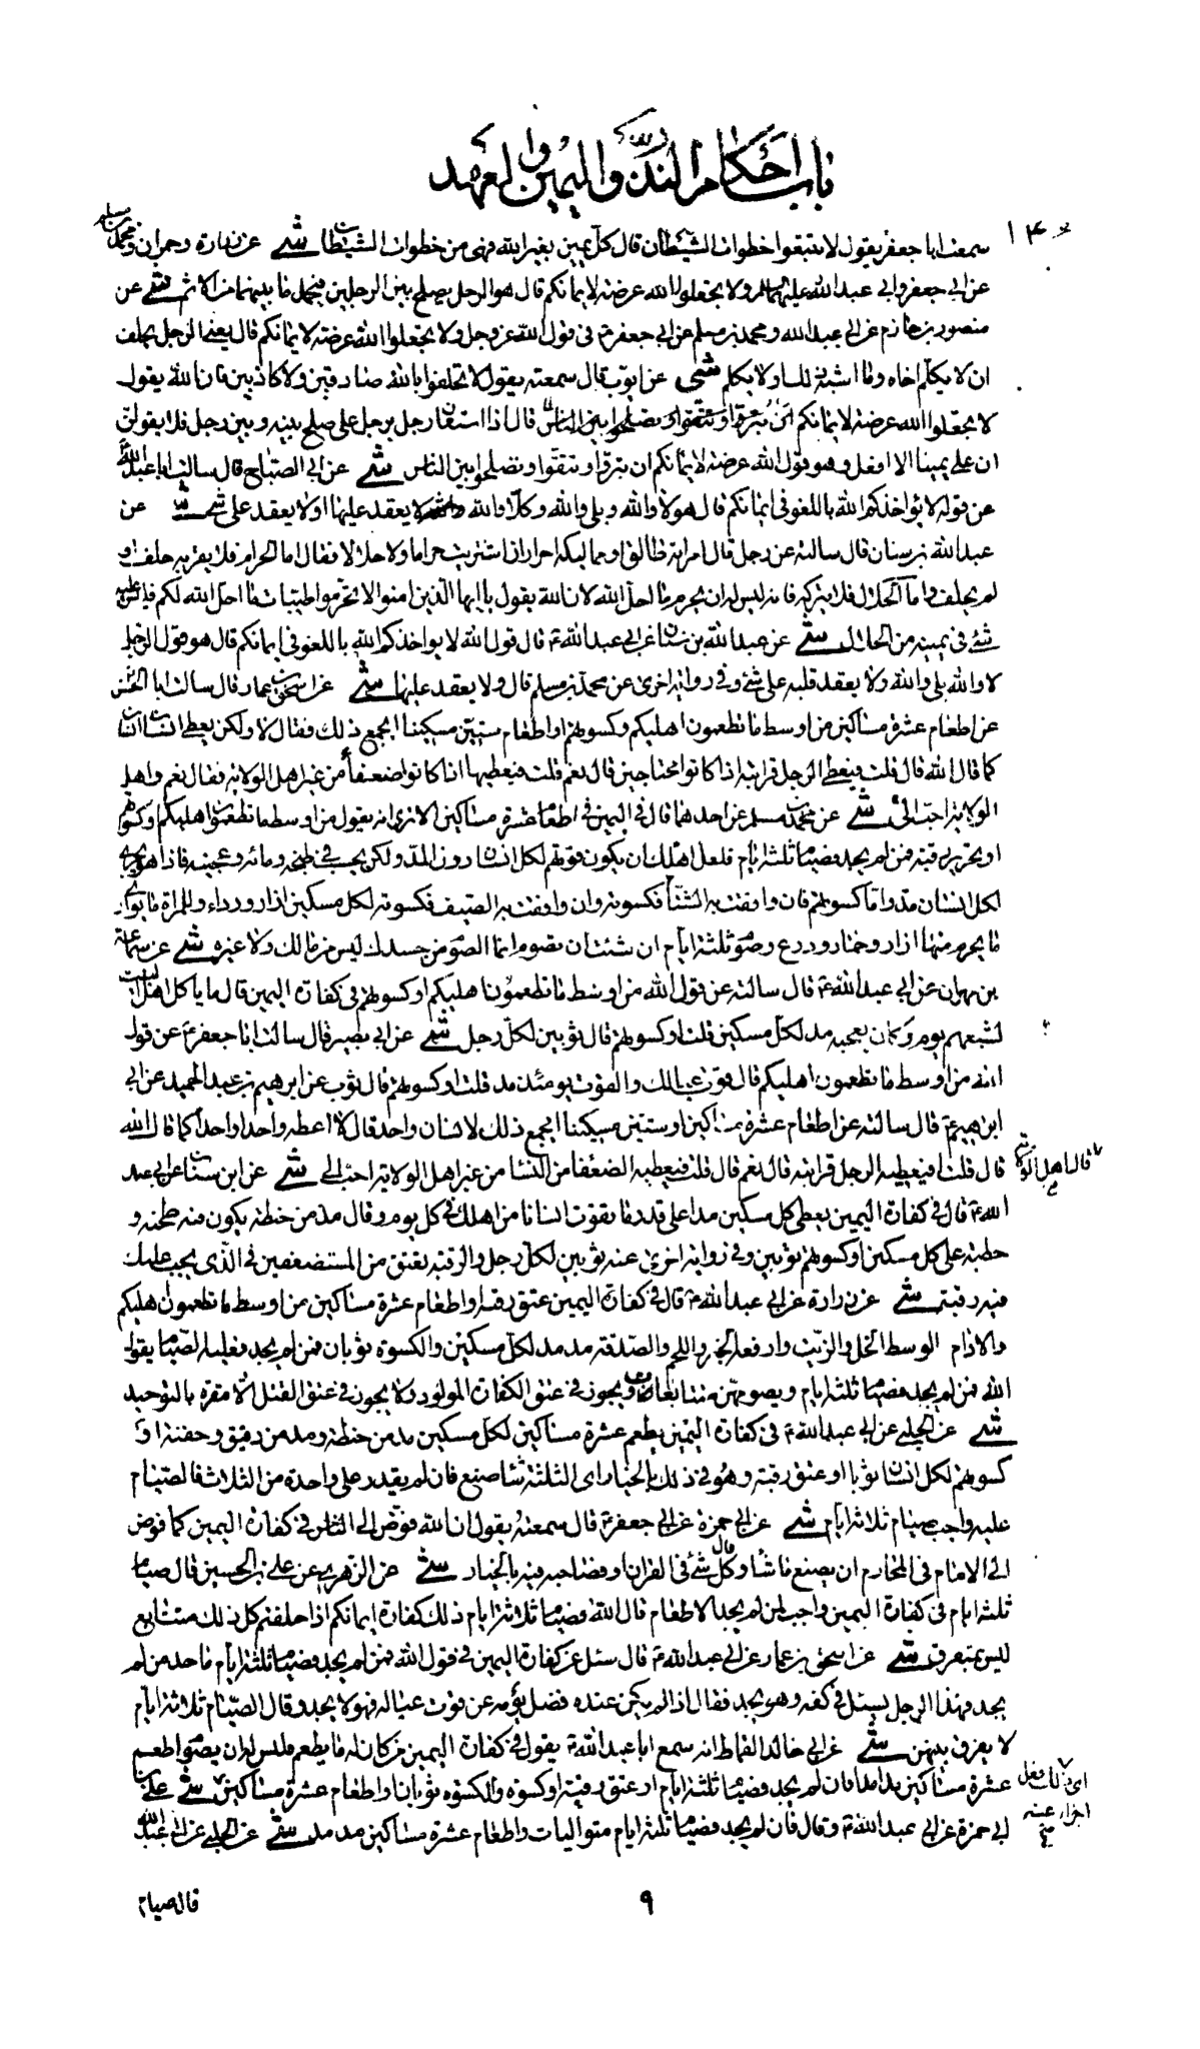 باب احكام النذر واليمين والعهد
سمعت ابا جعفر يقول لا تتبعوا خطوات الشيطان قال كل يمين بغير الله فهي من خطوات الشيطان شى عن زرارة وحمران ومحمد بن مسلم
عن ابي جعفر وابي عبد الله عليهما السلام ولا تجعلوا الله عرضة لايمانكم قال هو الرجل يصلح بين الرجلين فيحمل ما بينهما من الاثم شى عن
منصور بن حازم عن ابي عبد الله ومحمد بن مسلم عن ابي جعفر ع في قول الله عز وجل ولا تجعلوا الله عرضة لايمانكم قال يعني الرجل يحلف
ان لا يكلم اخاه وما اشبه ذلك او لا يكلم شى عن ايوب قال سمعته يقول لا تحلفوا بالله صادقين ولا كاذبين فان الله يقول
لا تجعلوا الله عرضة لايمانكم ان تبروا وتتقوا وتصلحوا بين الناس قال اذا استعان رجل برجل على صلح بينه وبين رجل فلا يقولن
ان علي يمينا الا افعل وهو قول الله عرضة لايمانكم ان تبروا وتتقوا وتصلحوا بين الناس شى عن ابي الصباح قال سالت ابا عبد الله
عن قوله لا يؤاخذكم الله باللغو في ايمانكم قال هو لا والله وبلى والله وكلا والله لا يعقد عليها او لا يعقد على شئ شى عن
عبد الله بن سنان قال سالته عن رجل قال امراته طالق او مماليكه احرار ان شربت حراما ولا حلالا فقال اما الحرام فلا يقربه حلف او
لم يحلف واما الحلال فلا يتركه فانه ليس له ان يحرم ما احل الله لان الله يقول يا ايها الذين امنوا لا تحرموا طيبات ما احل الله لكم فليس عليه
شئ في يمينه من الحلال شى عن عبد الله بن سنان عن ابي عبد الله ع قال قول الله لا يؤاخذكم الله باللغو في ايمانكم قال هو قول الرجل
لا والله بلى والله ولا يعقد قلبه على شئ وفي رواية اخرى عن محمد بن مسلم قال ولا يعقد عليها شى عن اسحق بن عمار قال سالت ابا الحسن
عن اطعام عشرة مساكين من اوسط ما تطعمون اهليكم وكسوتهم او اطعام ستين مسكينا ايجمع ذلك فقال لا ولكن يعطى انسان انسان
كما قال الله قال قلت فيعطي الرجل قرابته اذا كانوا محتاجين قال نعم قلت فيعطيها اذا كانوا ضعفاء من غير اهل الولاية فقال نعم واهل
الولاية احب الي شى عن محمد بن مسلم عن احدهما قال في اليمين في اطعام عشرة مساكين الا ترى انه يقول من اوسط ما تطعمون اهليكم او كسوتهم
او تحرير رقبة فمن لم يجد فصيام ثلثة ايام فلعل اهلك ان يكون قوتهم لكل انسان دون المد ولكن يحسب في طحنه ومائه وعجينه فاذا هو يجزي
لكل انسان مد واما كسوتهم فان وافقت به الشتاء فكسوته وان وافقت به الصيف فكسوته لكل مسكين ازار ورداء وللمراة ما يواري
ما يحرم منها ازار وخمار ودرع وصوم ثلثة ايام ان شئت ان تصوم انما الصوم من جسدك ليس من مالك ولا غيره شى عن سماعة
بن مهران عن ابي عبد الله ع قال سالته عن قول الله من اوسط ما تطعمون اهليكم او كسوتهم في كفارة اليمين قال ما ياكل اهل البيت
لشبعهم يوم وكان يعجبه مد لكل مسكين قلت او كسوتهم قال ثوبين لكل رجل شى عن ابي بصير قال سالت ابا جعفر ع عن قول
الله من اوسط ما تطعمون اهليكم قال قوت عيالك والقوت يومئذ مد قلت او كسوتهم قال ثوب عن ابرهيم بن عبد الحميد عن ابي
ابرهيم ع قال سالته عن اطعام عشرة مساكين او ستين مسكينا ايجمع ذلك لانسان واحد قال لا اعطه واحدا واحدا كما قال الله
قال قلت افيعطيه الرجل قرابته قال نعم قال قلت فيعطيه الضعفاء من النساء من غير اهل الولاية احب الي شى عن ابن سنان عن ابي عبد
قال اهل الولاية
الله ع قال في كفارة اليمين يعطى كل مسكين مدا على قدر ما يقوت انسانا من اهلك في كل يوم وقال مد من حنطة يكون فيه طحنه و
حطبه على كل مسكين او كسوتهم ثوبين وفي رواية اخرى عنه ثوبين لكل رجل والرقبة تعتق من المستضعفين في الذي يجب عليك
فيه رقبة شى عن زرارة عن ابي عبد الله ع قال في كفارة اليمين عتق رقبة او اطعام عشرة مساكين من اوسط ما تطعمون اهليكم
والادام الوسط الخل والزيت وارفعه الخبز واللحم والصدقة مد مد لكل مسكين والكسوة ثوبان فمن لم يجد فعليه الصيام يقول
الله فمن لم يجد فصيام ثلثة ايام ويصومهن متتابعا ويجوز في عتق الكفارة المولود ولا يجوز في عتق القتل الا مقرة بالتوحيد
شى عن الحلبي عن ابي عبد الله ع في كفارة اليمين يطعم عشرة مساكين لكل مسكين مد من حنطة ومد من دقيق وحفنة او
كسوتهم لكل انسان ثوبا او عتق رقبة وهو في ذلك بالخيار اي الثلثة شاء صنع فان لم يقدر على واحدة من الثلاث فالصيام
عليه واجب صيام ثلاثة ايام شى عن ابي حمزة عن ابي جعفر ع قال سمعته يقول ان الله فوض الى الناس في كفارة اليمين كما فوض
الى الامام في المحارم ان يصنع ما شاء وقال كل شئ في القران او فصاحبه فيه بالخيار شى عن الزهري عن علي بن الحسين قال صيام
ثلثة ايام في كفارة اليمين واجب لمن لم يجد الاطعام قال الله فصيام ثلاثة ايام ذلك كفارة ايمانكم اذا حلفتم كل ذلك متتابع
ليس بمتفرق شى عن اسحق بن عمار عن ابي عبد الله ع قال سئل عن كفارة اليمين في قول الله فمن لم يجد فصيام ثلثة ايام ما حد من لم
يجد فهذا الرجل يسئل في كفه وهو يجد فقال اذا لم يكن عنده فضل يومه عن قوت عياله فهو لا يجد وقال الصيام ثلاثة ايام
لا يفرق بينهن شى عن ابي خالد القماط انه سمع ابا عبد الله ع يقول في كفارة اليمين من كان له ما يطعم فليس له ان يصوم اطعم
عشرة مساكين مدا مدا فان لم يجد فصيام ثلثة ايام او عتق رقبة او كسوة والكسوة ثوبان او اطعام عشرة مساكين شى علي بن
اي ذلك فعل
اجزاء عنه
ابي حمزة عن ابي عبد الله ع وقال فان لم يجد فصيام ثلثة ايام متواليات واطعام عشرة مساكين مد مد شى عن الحلبي عن ابي عبد الله
٩
قال صيام